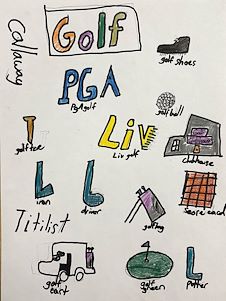 Callaway
Golf
golf shoes
PGA
PgA golf
golf ball
golf tee
Liv
Liv golf
clubhouse
iron
driver
golf bag
score card
Titilist
golf cart
golf green
putter